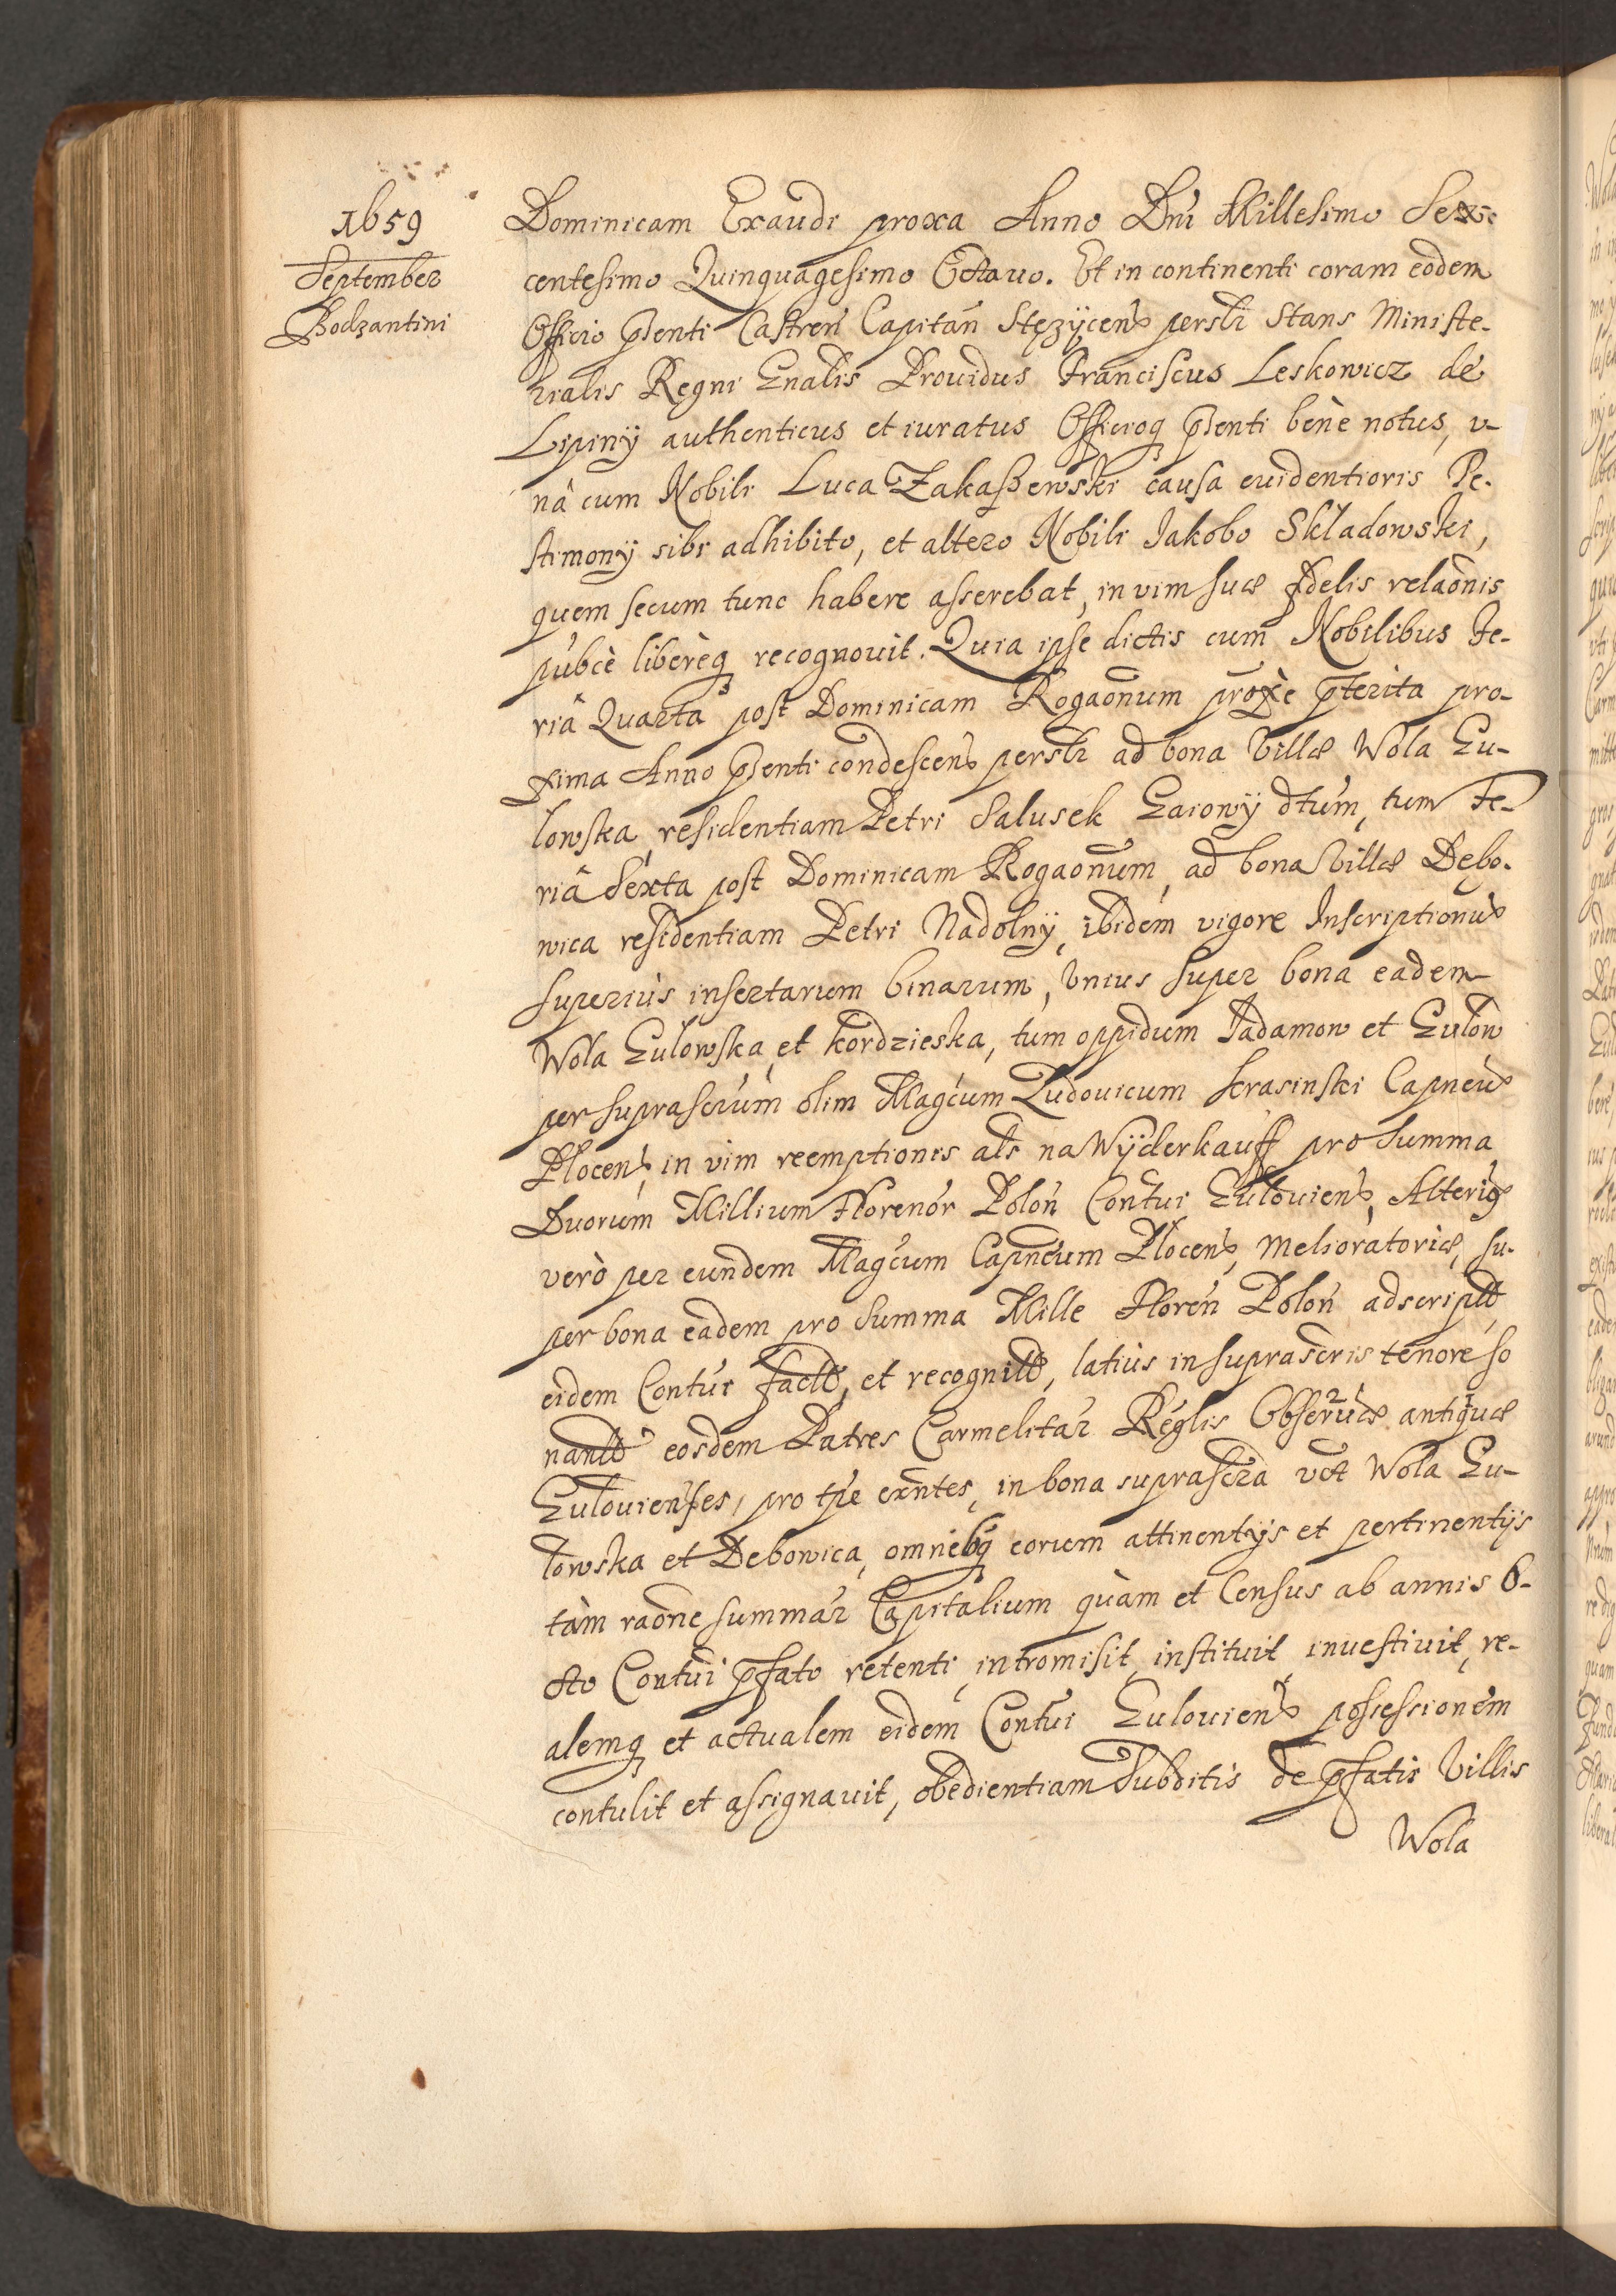 1659
September
Bodzantini
Dominicam Exaudi proxa Anno Dni Millesimo Sex
centesimo Quinquagesimo Octauo. Et in continenti coram eodem
Officio pñti Castren Capitan Stęzycens persltr stans Ministe-
rialis Regni Gnalis Prouidus Franciscus Leskowicz de
Lipiny authenticus et iuratus Officioq pñti benè notus, v-
nâ cum Nobili Luca Zakaßewski causa euidentioris Te-
stimony sibi adhibito, et altero Nobili Jakobo Skladowski,
quem secum tunc habere asserebat, in vim suæ fidelis relaõnis
pubcè liberèq recognouit. Quia ipse dictis cum Nobilibus Fe-
riâ Quarta post Dominicam Rogaõnum proxè pterita pro-
xima Anno pñti condescens persltr ad bona Villæ Wola Gu-
lowska residentiam Petri Salusek Gaiowy dtum, tum Fe-
riâ Sexta post Dominicam Rogaõnum, ad bona Villæ Debo-
wica residentiam Petri Nadolny, ibidem vigore Inscriptionũ
superiùs insertarum binarum, vnius super bona eadem
Wola Gulowska et Kordzieska, tum oppidum Jadamow et Gulow
per suprascrum olim Magcum Ludouicum Krasinski Capneũ
Plocens, in vim reemptionis als na Wyderkauff pro summa
Duorum Millium Florenor Polon Contui Guloviens, Alterius
verò per eundem Magcum Capneum Plocens, melioratoriæ, su-
per bona eadem pro summa Mille Floren Polon adscriptæ,
eidem Contui factæ, et recognitæ, latius in suprascris tenore so
nantæ eosdem Patres Carmelitar Reglis Obserũæ antiquæ
Guloviensses, pro tpe exntes, in bona suprascra vct Wola Gu-
lowska et Debowica, omnibq eorum attinentijs et pertinentijs
tàm raõne summar Capitalium quàm et Census ab annis o-
cto Contui pfato retenti, intromisit, instituit inuestiuit, re-
alemq et actualem eidem Contui Guloviens possessionem
contulit et assignauit, obedientiam Subditis de pfatis Villis
Wola